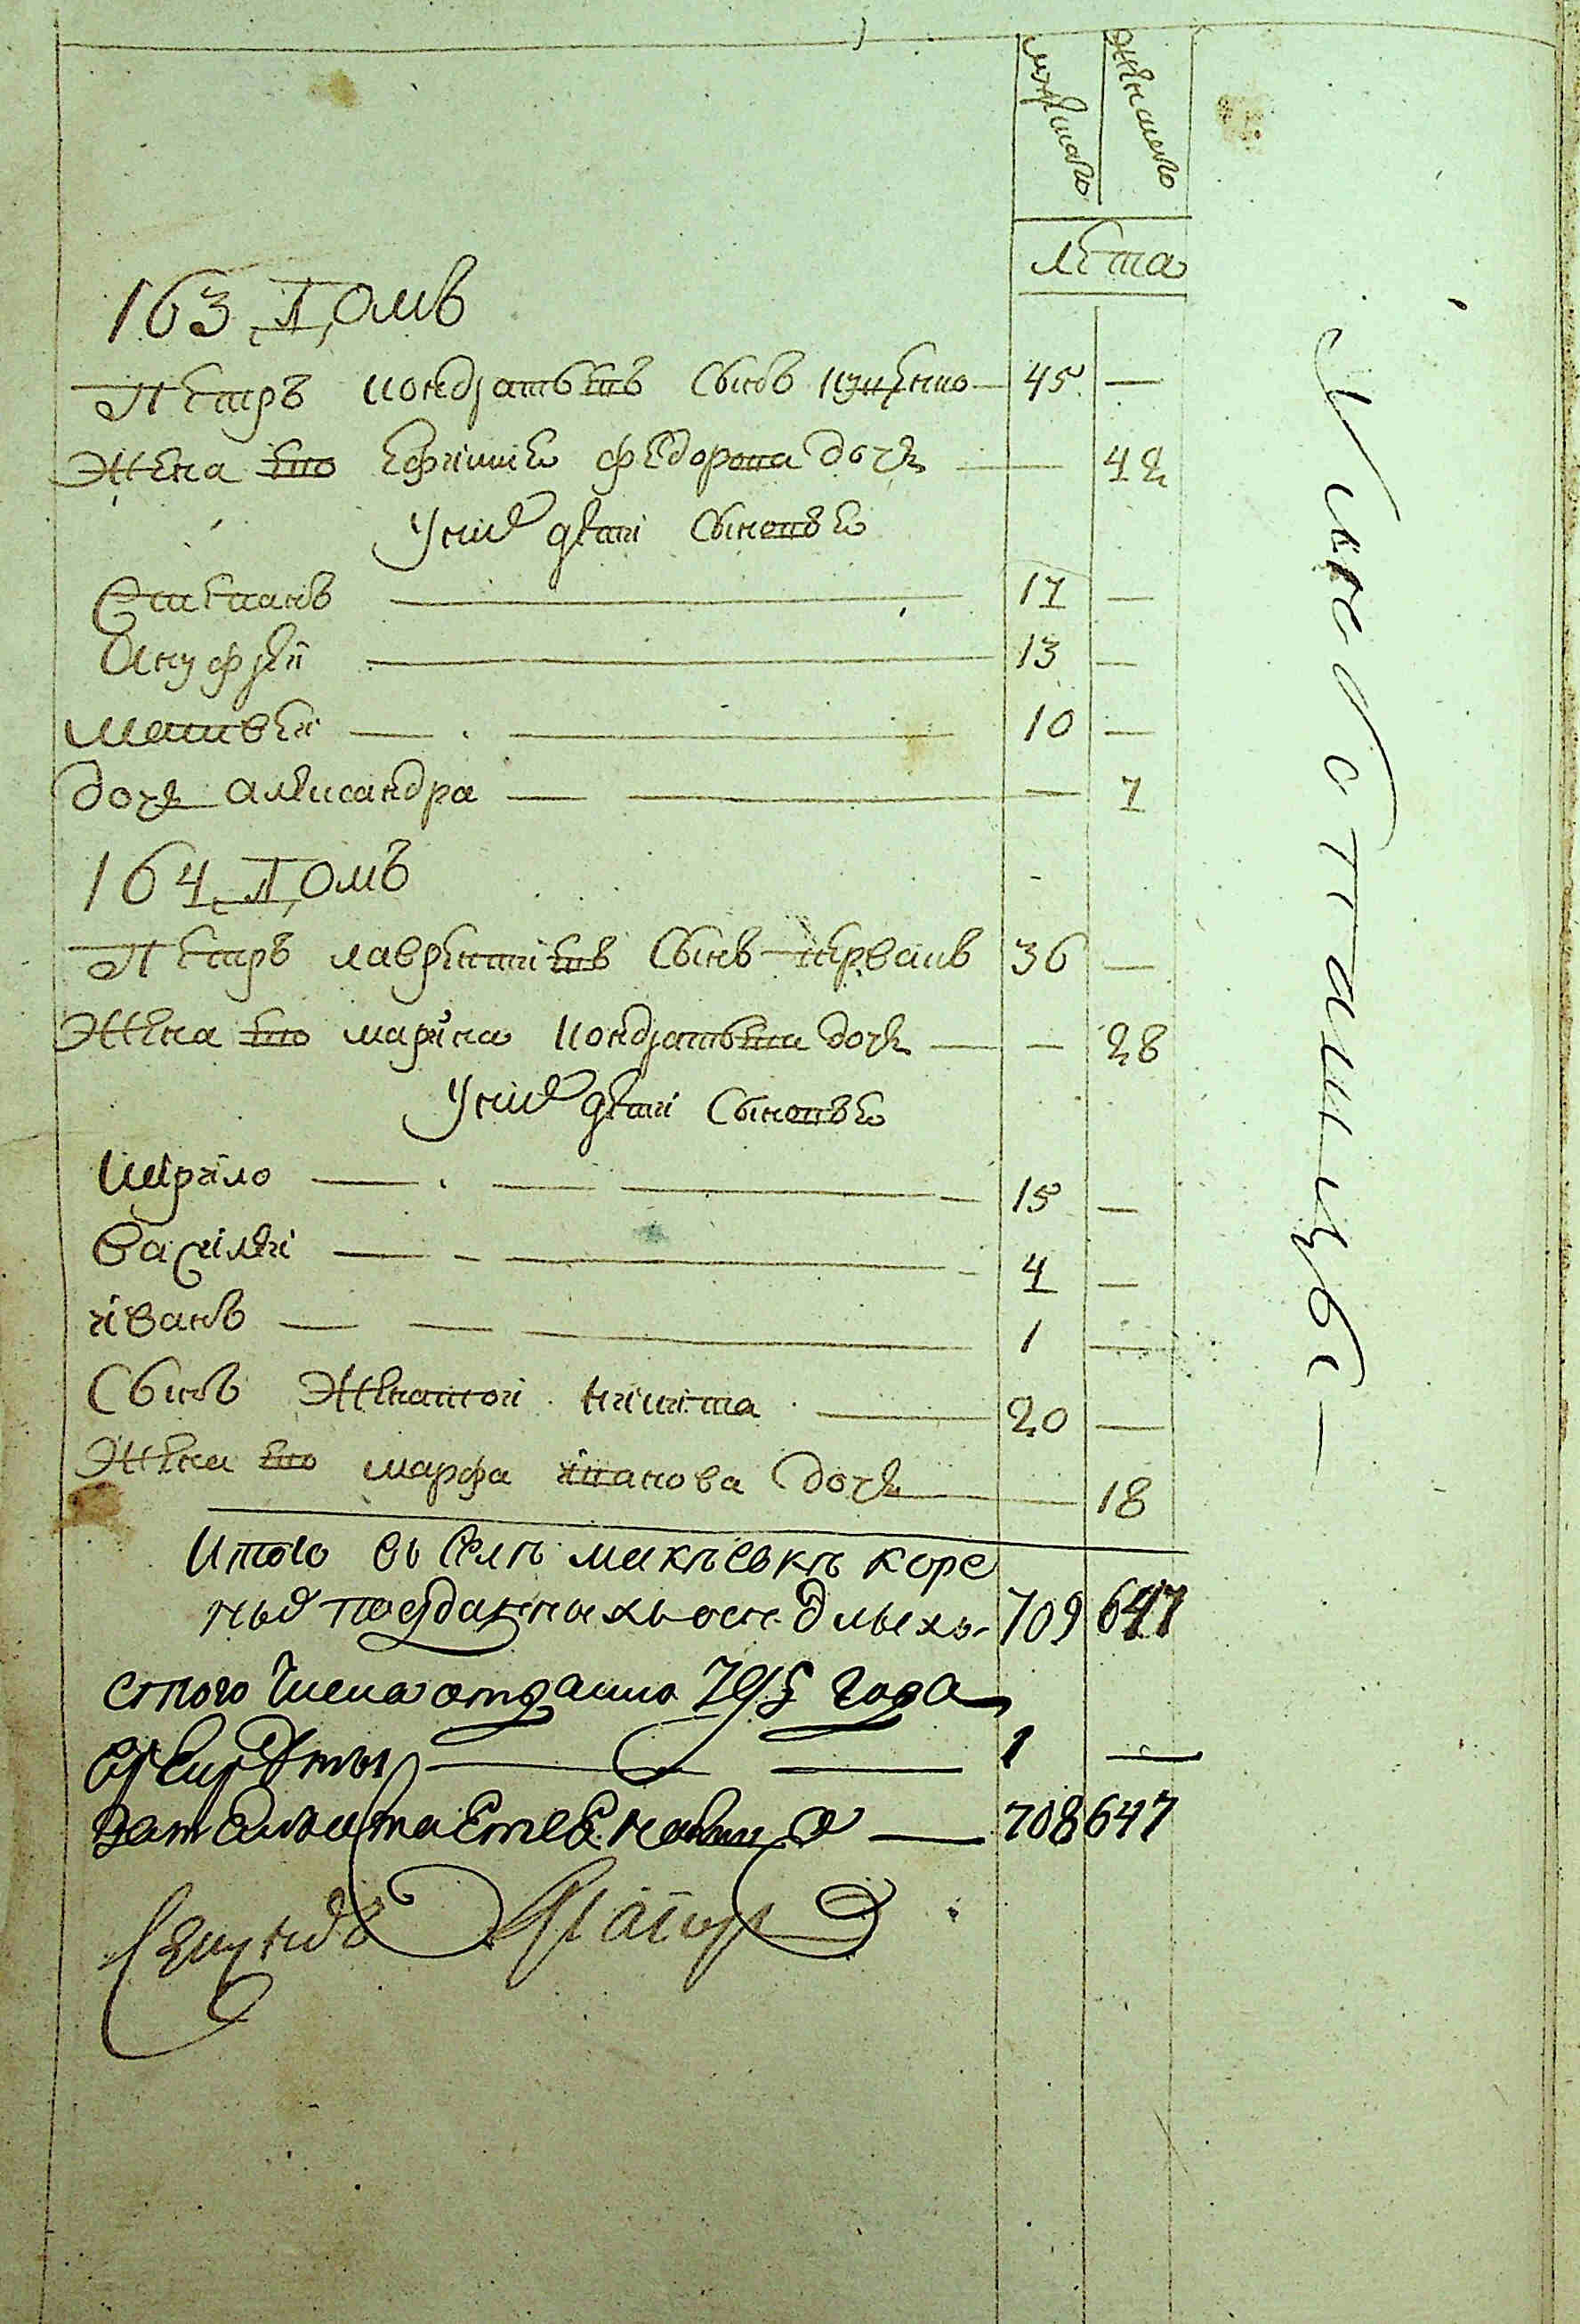 мужеска женска
лета
163 Домъ
Петръ Кондратьевъ сынъ Куценко — 45 —
Жена его Ефимия Федорова дочь — 42
У них дети сыновья
Степанъ — 17 —
Ануфрей — 13 —
Матвей — 10 —
дочь Александра — — 7
164 Домъ
Петръ Лаврентиевъ сынъ 36 —
Жена его Марина Кондратьева дочь — — 28
У них дети сыновья
Кирило — 15 —
Василей — 4 —
Иванъ — 1 —
Сынъ женатой Никита — 20 —
Жена его Марфа Иванова дочь — 18
Итого въ селѣ Макѣевкѣ коре
ных подданныхъ оседлыхъ 709 647
с того числа отдано 795 года
в рекруты — 1 —
затемъ остаетъся в наличие — 708 647